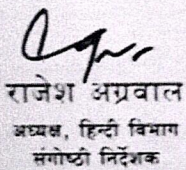 राजेश अग्रवाल
अध्यक्ष, हिन्दी विभाग
संगोष्ठी निर्देशक